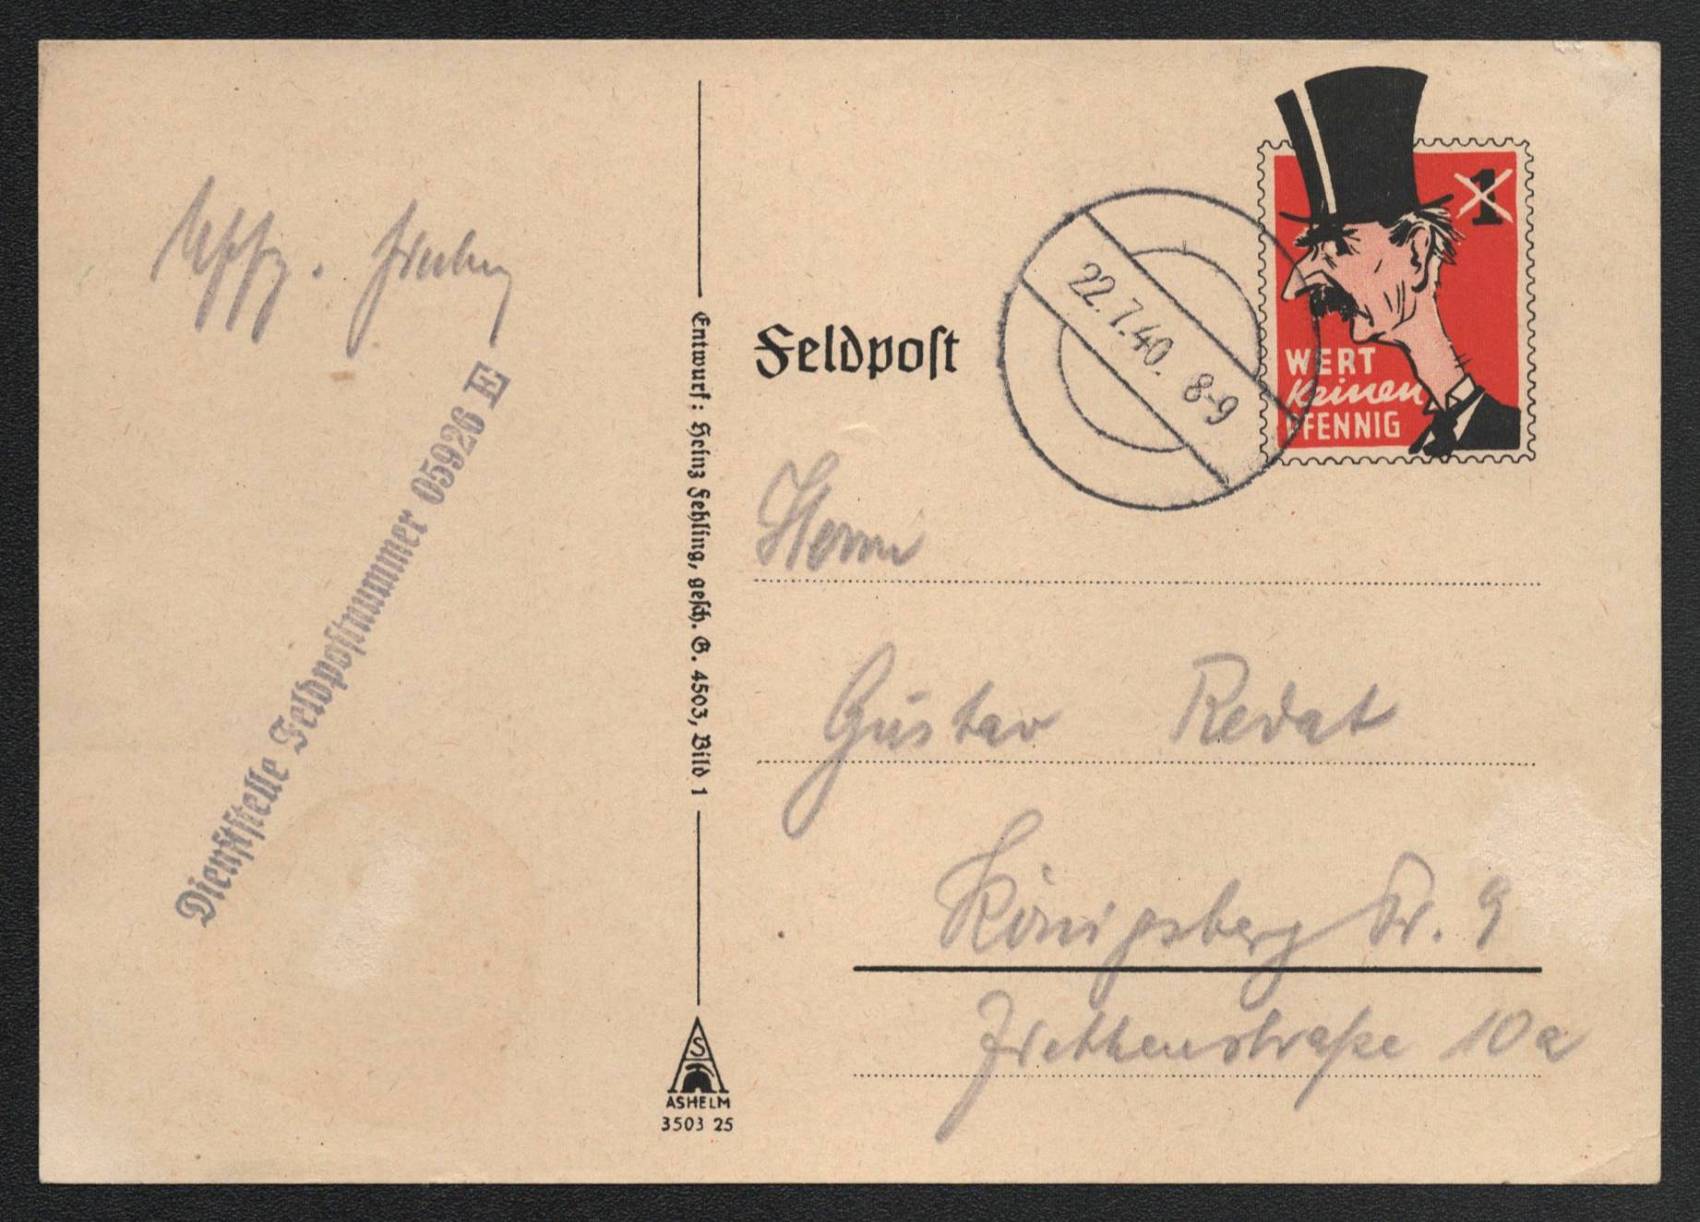 Dienststelle Feldpostnummer 05926 E
Entwurf: Heinz Fehling, gesch. G. 4503, Bild 1
AS
ASHELM
3503 25
Feldpost
22.7.40. 8-9
1
WERT
keinen
PFENNIG
Herrn
Gustav Redat
Königsberg Pr. 9
10a